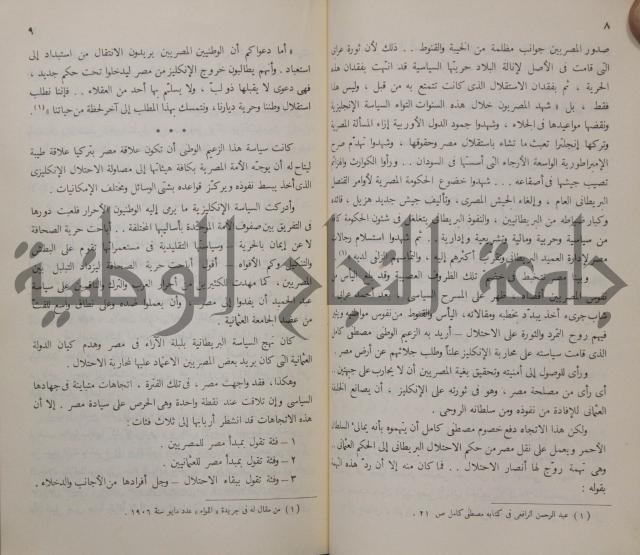 ٨
صدور المصريين جوانب مظلمة من الخيبة والقنوط . . ذلك لأن ثورة عرابى
التى قامت فى الأصل لإنالة البلاد حريتها السياسية قد انتهت بفقدان هذه
الحرية ، ثم بفقدان الاستقلال الذى كانت تتمتع به من قبل ، وليس هذا
فقط ، بل شهد المصريون خلال هذه السنوات التواء السياسة الإنجليزية
ونقضها مواعيدها فى الجلاء ، وشهدوا جمود الدول الأوربية إزاء المسألة المصرية
وتركها إنجلترا تعبث ما تشاء باستقلال مصر وحقوقها ، وشهدوا تهدّم صرح
الإمبراطورية الواسعة الأرجاء التى أسستها فى السودان . . ورأوا الكوارث والهزائم
تصيب جيشها فى أصقاعه . . شهدوا خضوع الحكومة المصرية لأوامر القنصل
البريطانى العام ، وإلغاء الجيش المصرى ، وتأليف جيش جديد هزيل ، قائده
وكبار ضباطه من البريطانيين ، والنفوذ البريطانى يتغلغل فى شئون الحكومة كافة
من سياسية وحربية ومالية وتشريعية وإدارية . . ثم شهدوا استسلام رجالات
مصر لإدارة العميد البريطانى وتقرب أكثرهم إليه ، والتماسهم الزلفى لديه (١)
تلك الظروف العصيبة وقد بلغ اليأس
نفوس المصريين أقصاه ، ظهر على المسرح السياسى
شاب جرىء أخذ يبدّد بخطبه ومقالاته ، اليأس والقنوط من نفوس مواطنيه ويثير
فيهم روح التمرد والثورة على الاحتلال – أريد به الزعيم الوطنى مصطفى كامل
الذى قامت سياسته على محاربة الإنكليز علناً وطلب جلائهم عن أرض مصر .
ورأى للوصول إلى أمنيته وتحقيق بغية المصريين أن لا يحارب على جبهتين . .
أى رأى من مصلحة مصر ، وهو فى ثورته على الإنكليز ، أن يصانع الخليفة
العثمانى للإفادة من نفوذه ومن سلطانه الروحى .
ولكن هذا الاتجاه دفع خصوم مصطفى كامل أن يتهموه بأنه يمالىء السلطان
الأحمر ويعمل على نقل مصر من حكم الاحتلال البريطانى إلى الحكم العثمانى . .
وهى تهمة روّج لها أنصار الاحتلال . . فما كان منه إلا أن ردّ هذه التهمة
بقوله :
(١) عبد الرحمن الرافعى فى كتابه مصطفى كامل ص ٢١ .
٩
« أما دعواكم أن الوطنيين المصريين يريدون الانتقال من استبداد إلى
استعباد . وأنهم يطالبون خروج الإنكليز من مصر ليدخلوا تحت حكم جديد ،
فهى دعوى لا يقبلها ذو لبّ ، ولا يسلم بها أحد من العقلاء . . فإننا نطلب
استقلال وطننا وحرية ديارنا، ونتمسك بهذا المطلب إلى آخر لحظة من حياتنا » (١) .
* * *
كانت سياسة هذا الزعيم الوطنى أن تكون علاقة مصر بتركيا علاقة طيبة
ليتاح له أن يوجّه الأمة المصرية بكافة هيئاتها إلى مصاولة الاحتلال الإنكليزى
الذى أخذ يبسط نفوذه ويركّز قواعده بشتى الوسائل ومختلف الإمكانيات .
وأدركت السياسة الإنكليزية ما يرمى إليه الوطنيون الأحرار فلعبت دورها
فى التفريق بين صفوف الأمة الموحّدة بأساليبها المختلفة . . أباحت حرية الصحافة
لا عن إيمان بالحرية وسياستها التقليدية فى مستعمراتها تقوم على البطش
والتنكيل وكم الأفواه – أقول أباحت حرية الصحافة ليزداد التبلبل بين
المصريين ، كما مهدت للكثيرين من أحرار العرب والترك والناقمين على سياسة
عبد الحميد أن يفدوا إلى مصر وأن يعملوا ضده وعلى نطاق واسع للفتّ
من عضد الجامعة العثمانية .
كان نهج السياسة البريطانية بلبلة الآراء فى مصر وهدم كيان الدولة
العثمانية التى كان يريد بعض المصريين الاعتماد عليها لمحاربة الاحتلال .
وهكذا ، فقد واجهت مصر ، فى تلك الفترة ، اتجاهات متباينة فى جهادها
السياسى وإن تلاقت عند نقطة واحدة وهى الحرص على سيادة مصر . إلا أن
هذه الاتجاهات قد انشطر أربابها إلى ثلاث فئات :
١ – فئة تقول بمبدأ مصر للمصريين .
٢ – وفئة تقول بمبدأ مصر للعثمانيين .
٣ – وفئة تقول ببقاء الاحتلال – وجل أفرادها من الأجانب والدخلاء .
(١) من مقال له فى جريدة « اللواء » عدد مايو سنة ١٩٠٦ .
جامعة النجاح الوطنية